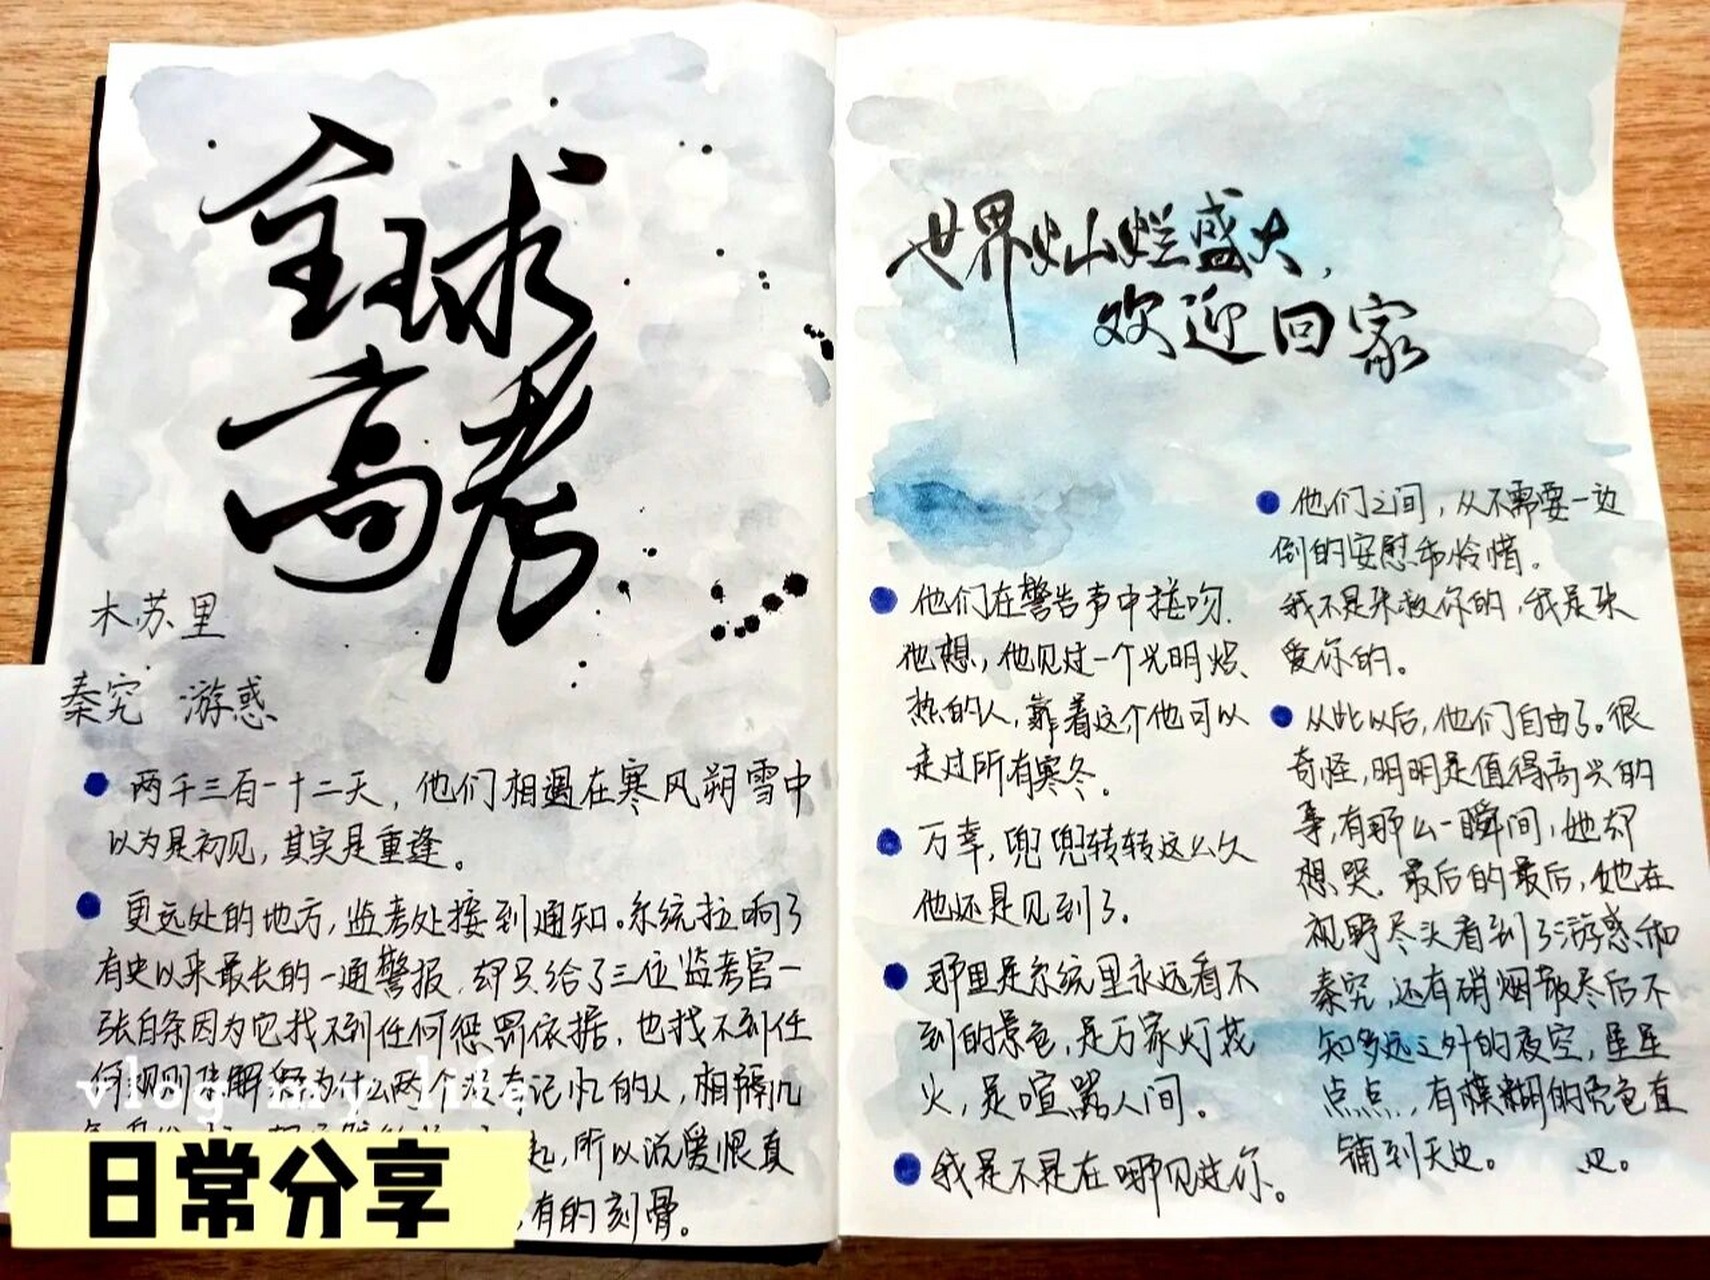 全球
高考
木苏里
秦究 游惑
两千三百一十二天，他们相遇在寒风朔雪中
以为是初见，其实是重逢。
更远处的地方，监考处接到通知。系统拉响了
有史以来最长的一通警报，却只给了三位监考官一
张白条因为它找不到任何惩罚依据，也找不到任
何规则来解释为什么两个没有记忆的人，相隔几
起，所以说爱恨真
有的刻骨。
vlog my life
日常分享
世界灿烂盛大，
欢迎回家
他们在警告声中接吻.
他想，他见过一个光明炽
热的人，靠着这个他可以
走过所有寒冬。
万幸，兜兜转转这么久
他还是见到了。
那里是系统里永远看不
到的景色，是万家灯花
火，是喧嚣人间。
我是不是在哪见过你。
他们之间，从不需要一边
倒的安慰和怜惜。
我不是来救你的，我是来
爱你的。
从此以后，他们自由了。很
奇怪，明明是值得高兴的
事，有那么一瞬间，她却
想哭. 最后的最后，她在
视野尽头看到了游惑和
秦究，还有硝烟散尽后不
知多远之外的夜空，星星
点点，有模糊的亮色直
铺到天边。 边。